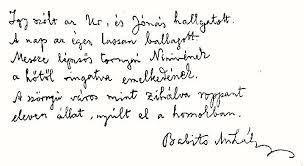 Igy szólt az Ur, és Jónás hallgatott.
A nap az égen lassan ballagott.
Messze lépcsős tornyai Ninivének
a hőtől ringatva emelkedének.
A szörnyü város mint zihálva roppant
eleven állat, nyúlt el a homokban.
Babits Mihály